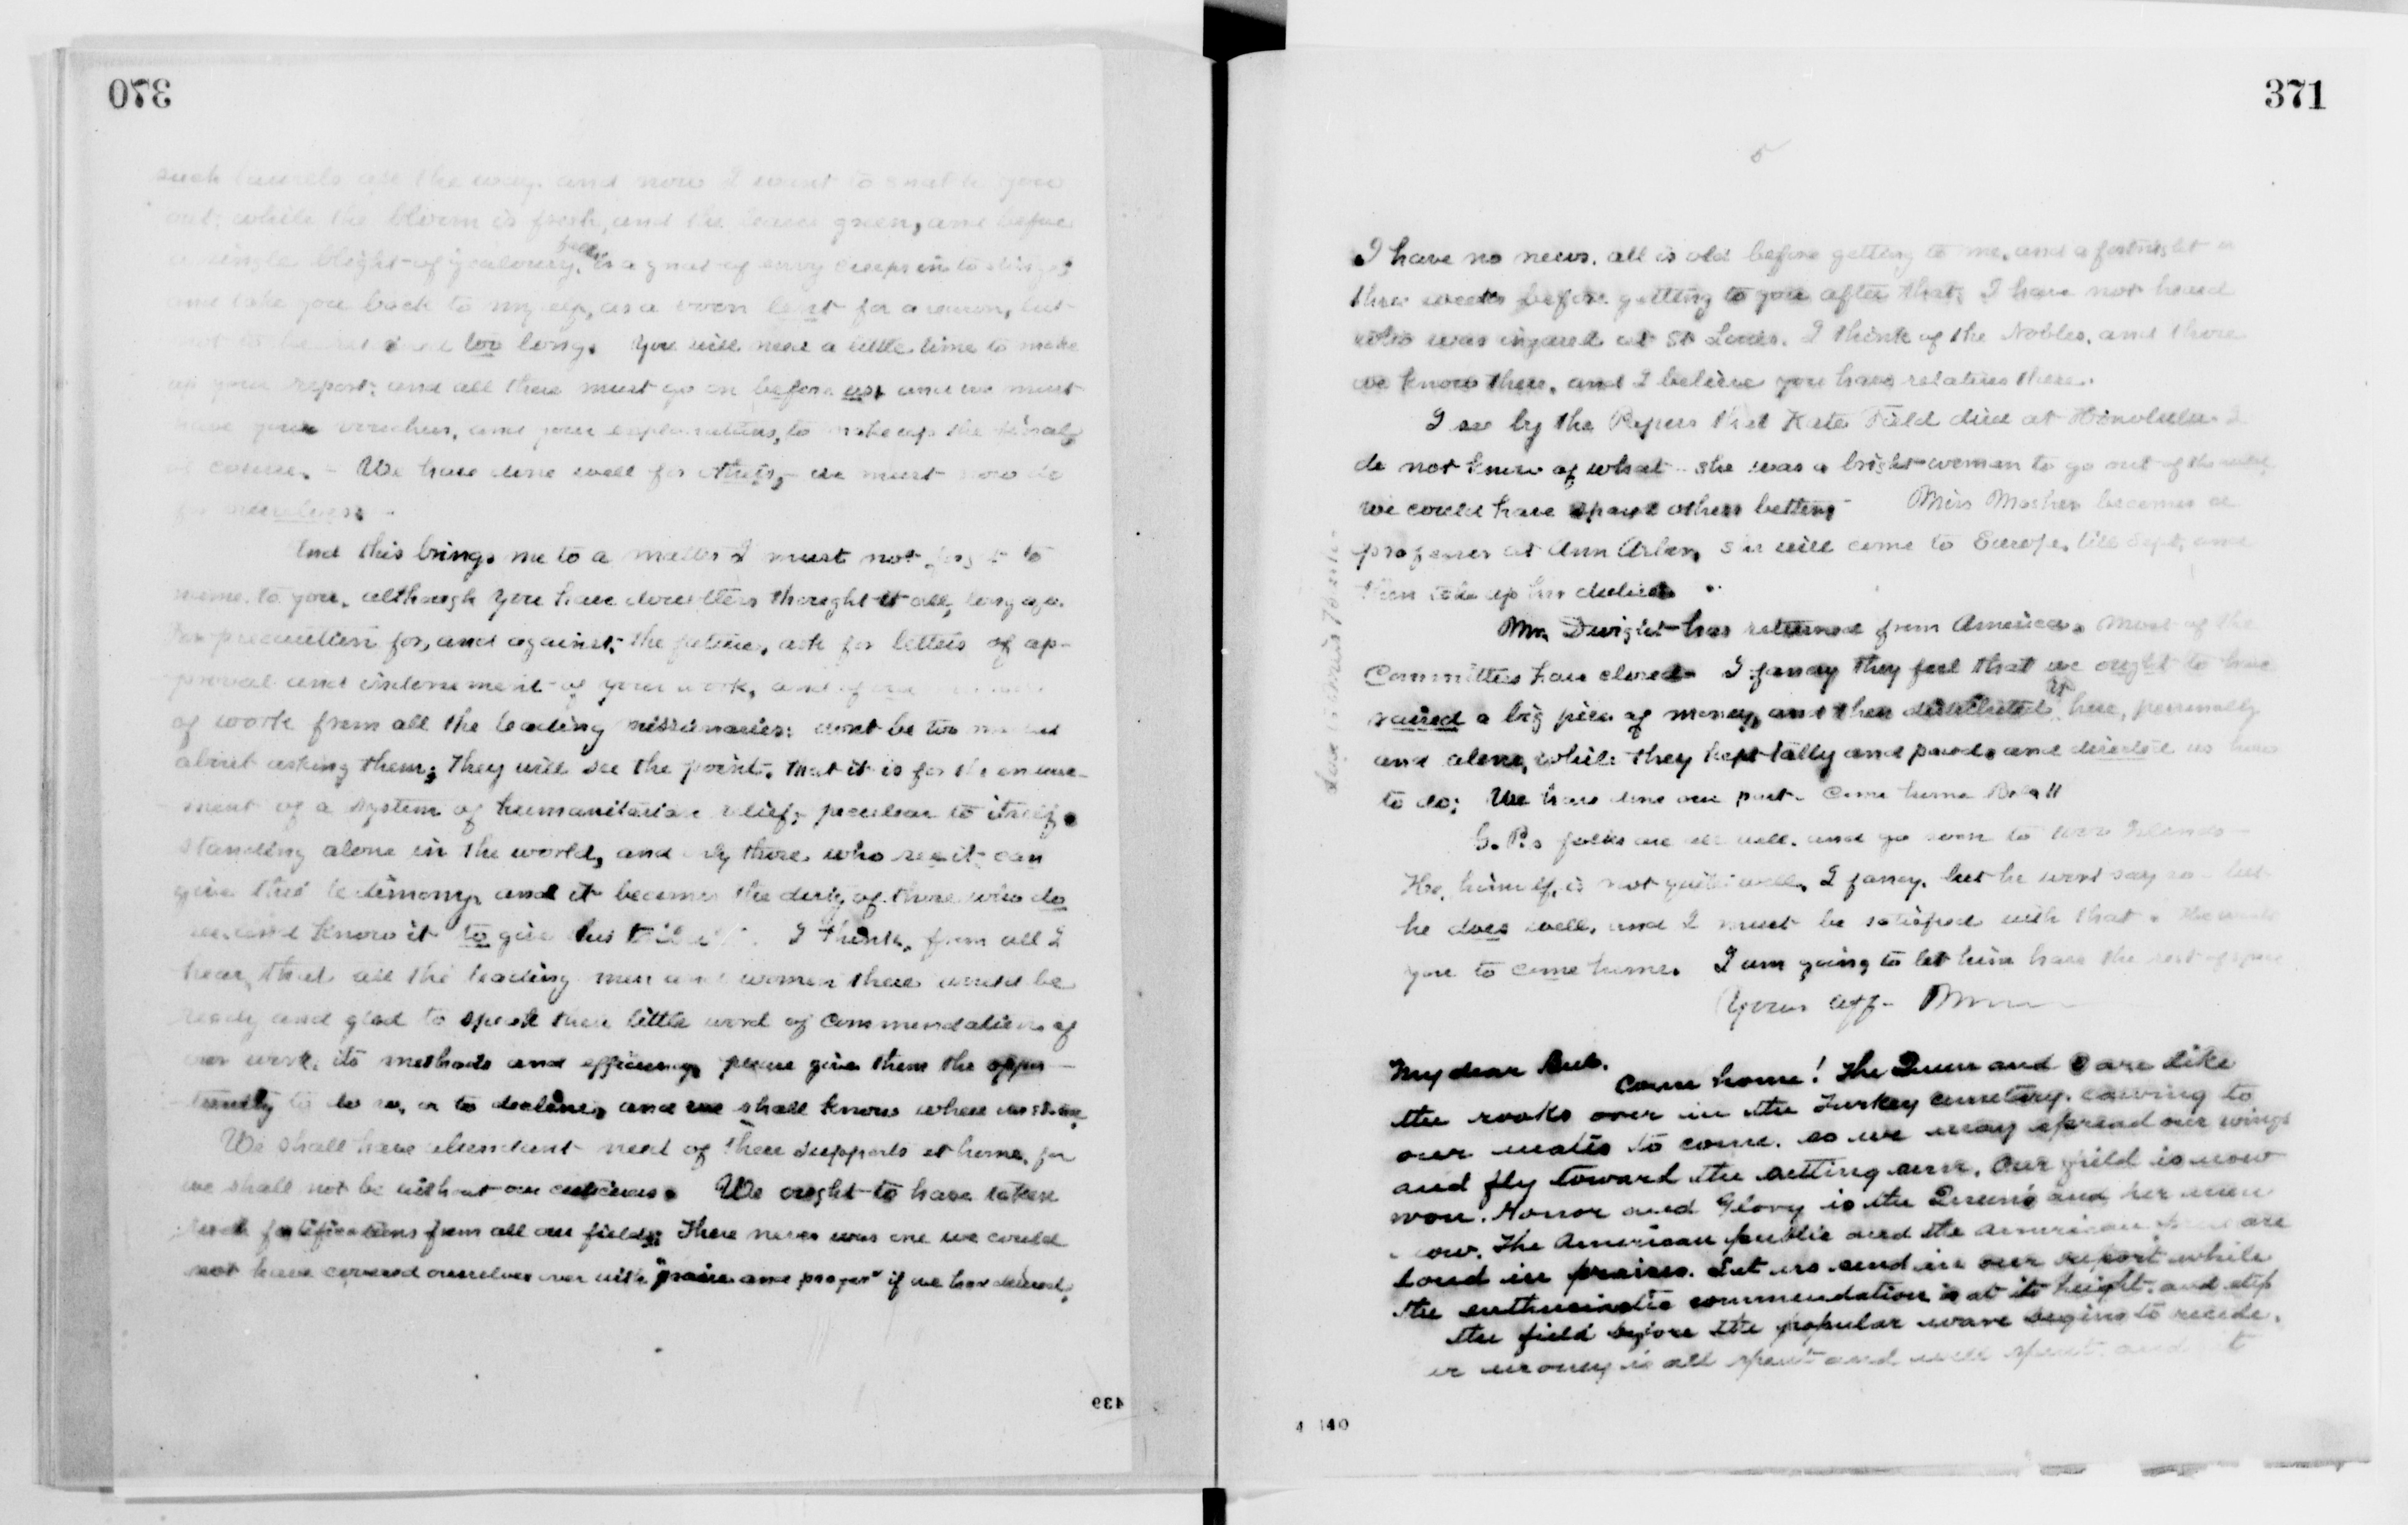 370
such laurels all the way. and now I want to snatch you
out, while the bloom is fresh, and the leaves green, and before
a single blight of jealousy, or a gnat of envy creeps in to sting;
and take you back to myself, as a boon lent for a season, but
not to be too long. You will need a little time to make
up your report: and all these must go on before us, and we must
have your vouchers, and your explanations, to make up the
of course. - We have done well for others, - we must now do
for ourselves. -
And this brings me to a matter I must not forget to
name to you, although you have doubtless thought it all, long ago.
precaution for, and against, the future, ask for letters of ap-
proval and indorsement of your work, and of
of work from all the leading missionaries: dont be too modest
about asking them; they will see the point, that it is for the
ment of a system of humanitarian relief, peculiar to itself.
standing alone in the world, and only those who see it can
give this testimony, and it becomes the duty of those who do
see and know it to give this I think, from all I
hear, that all the leading men and women there would be
ready and glad to speak their little word of commendation of
our work, its methods and efficiency, please give them the oppor-
tunity to do so, or to decline, and we shall know where we stand.
We shall have abundant need of these supports at home, for
we shall not be without our criticisms. We ought to have taken
such fortifications from all our fields; There never was one we could
not have covered ourselves over with "praise and prayer" if we had desired.
439
371
5
I have no news. all is old before getting to me, and a fortnight or
three weeks before getting to you after that; I have not heard
who was injured at St Louis. I think of the Nobles, and those
we know there, and I believe you have relatives there.
I see by the Papers that Kate Field died at Honolulu. I
do not know of what - she was a bright woman to go out of the world,
we could have spared others better; Miss Mosher becomes a
professor at Ann Arbor, she will come to Europe, till Sept, and
then take up her duties.
Mr. Dwight has returned from America. Most of the
Committees have closed. I fancy they feel that we ought to have
raised a big piece of money, and then distributed it here, personally
and alone, while they kept tally and paused, and directed us how
to do; We have done our part. Come home Both!!
G. P.s folks are all well. and go soon to Islands -
He, himself, is not quite well, I fancy, but he wont say so - but
he does well, and I must be satisfied with that. He wants
you to come home. I am going to let him have the rest of space
Yours aff-
My dear Bub.
Come home! The Queen and I are like
the rooks over in the Turkey cemetery, cawing to
our mates to come. so we may spread our wings
and fly toward the setting sun. Our field is now
won. Honor and Glory is the Queen's and her men
now. The American public and the American are
loud in praises. Let us send in our report while
the enthusiastic commendation is at its height, and step
the field before the popular wave begins to recede.
er money is all spent and well spent. and
4 140